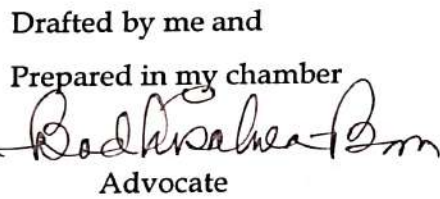 Drafted by me and
Prepared in my chamber
Advocate